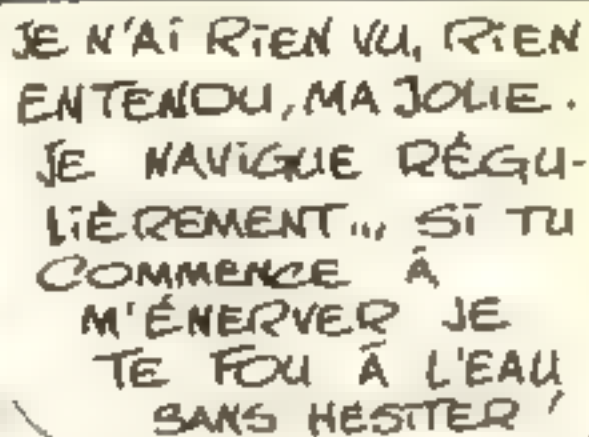 JE N'Ai RiEN VU, RiEN
ENTENDU, MA JOLIE.
JE NAViGUE RÉGU-
LiÈREMENT... Si TU
COMMENCE À
M'ÉNERVER JE
TE FOU À L'EAU
SANS HESITER !